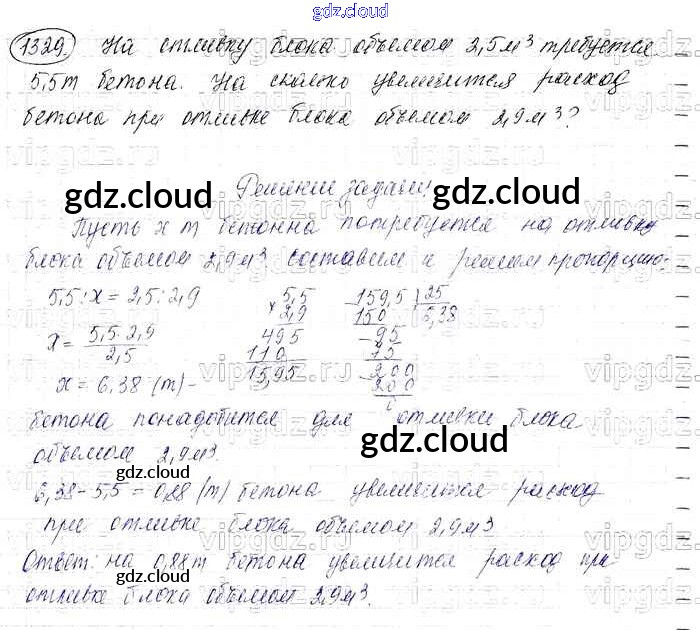 gdz.cloud
1329. На отливку блока объемом 2,5 м³ требуется
5,5 т бетона. На сколько увеличится расход
бетона при отливке блока объемом 2,9 м³?
Решение задачи
gdz.cloud gdz.cloud
Пусть х т бетонна потребуется на отливку
блока объемом 2,9 м³ составим и решим пропорцию.
5,5 : х = 2,5 : 2,9
х = 5,5 · 2,9 / 2,5
х = 6,38 (т) –
× 5,5
2,9
495
110
15,95
159,5 | 25
150 | 6,38
95
75
200
200
0
бетона понадобится для отливки блока
объемом 2,9 м³.
gdz.cloud gdz.cloud
6,38 – 5,5 = 0,88 (т) бетона увеличится расход
при отливке блока объемом 2,9 м³
Ответ: на 0,88 т бетона увеличится расход при
отливке блока объемом 2,9 м³.
gdz.cloud gdz.cloud